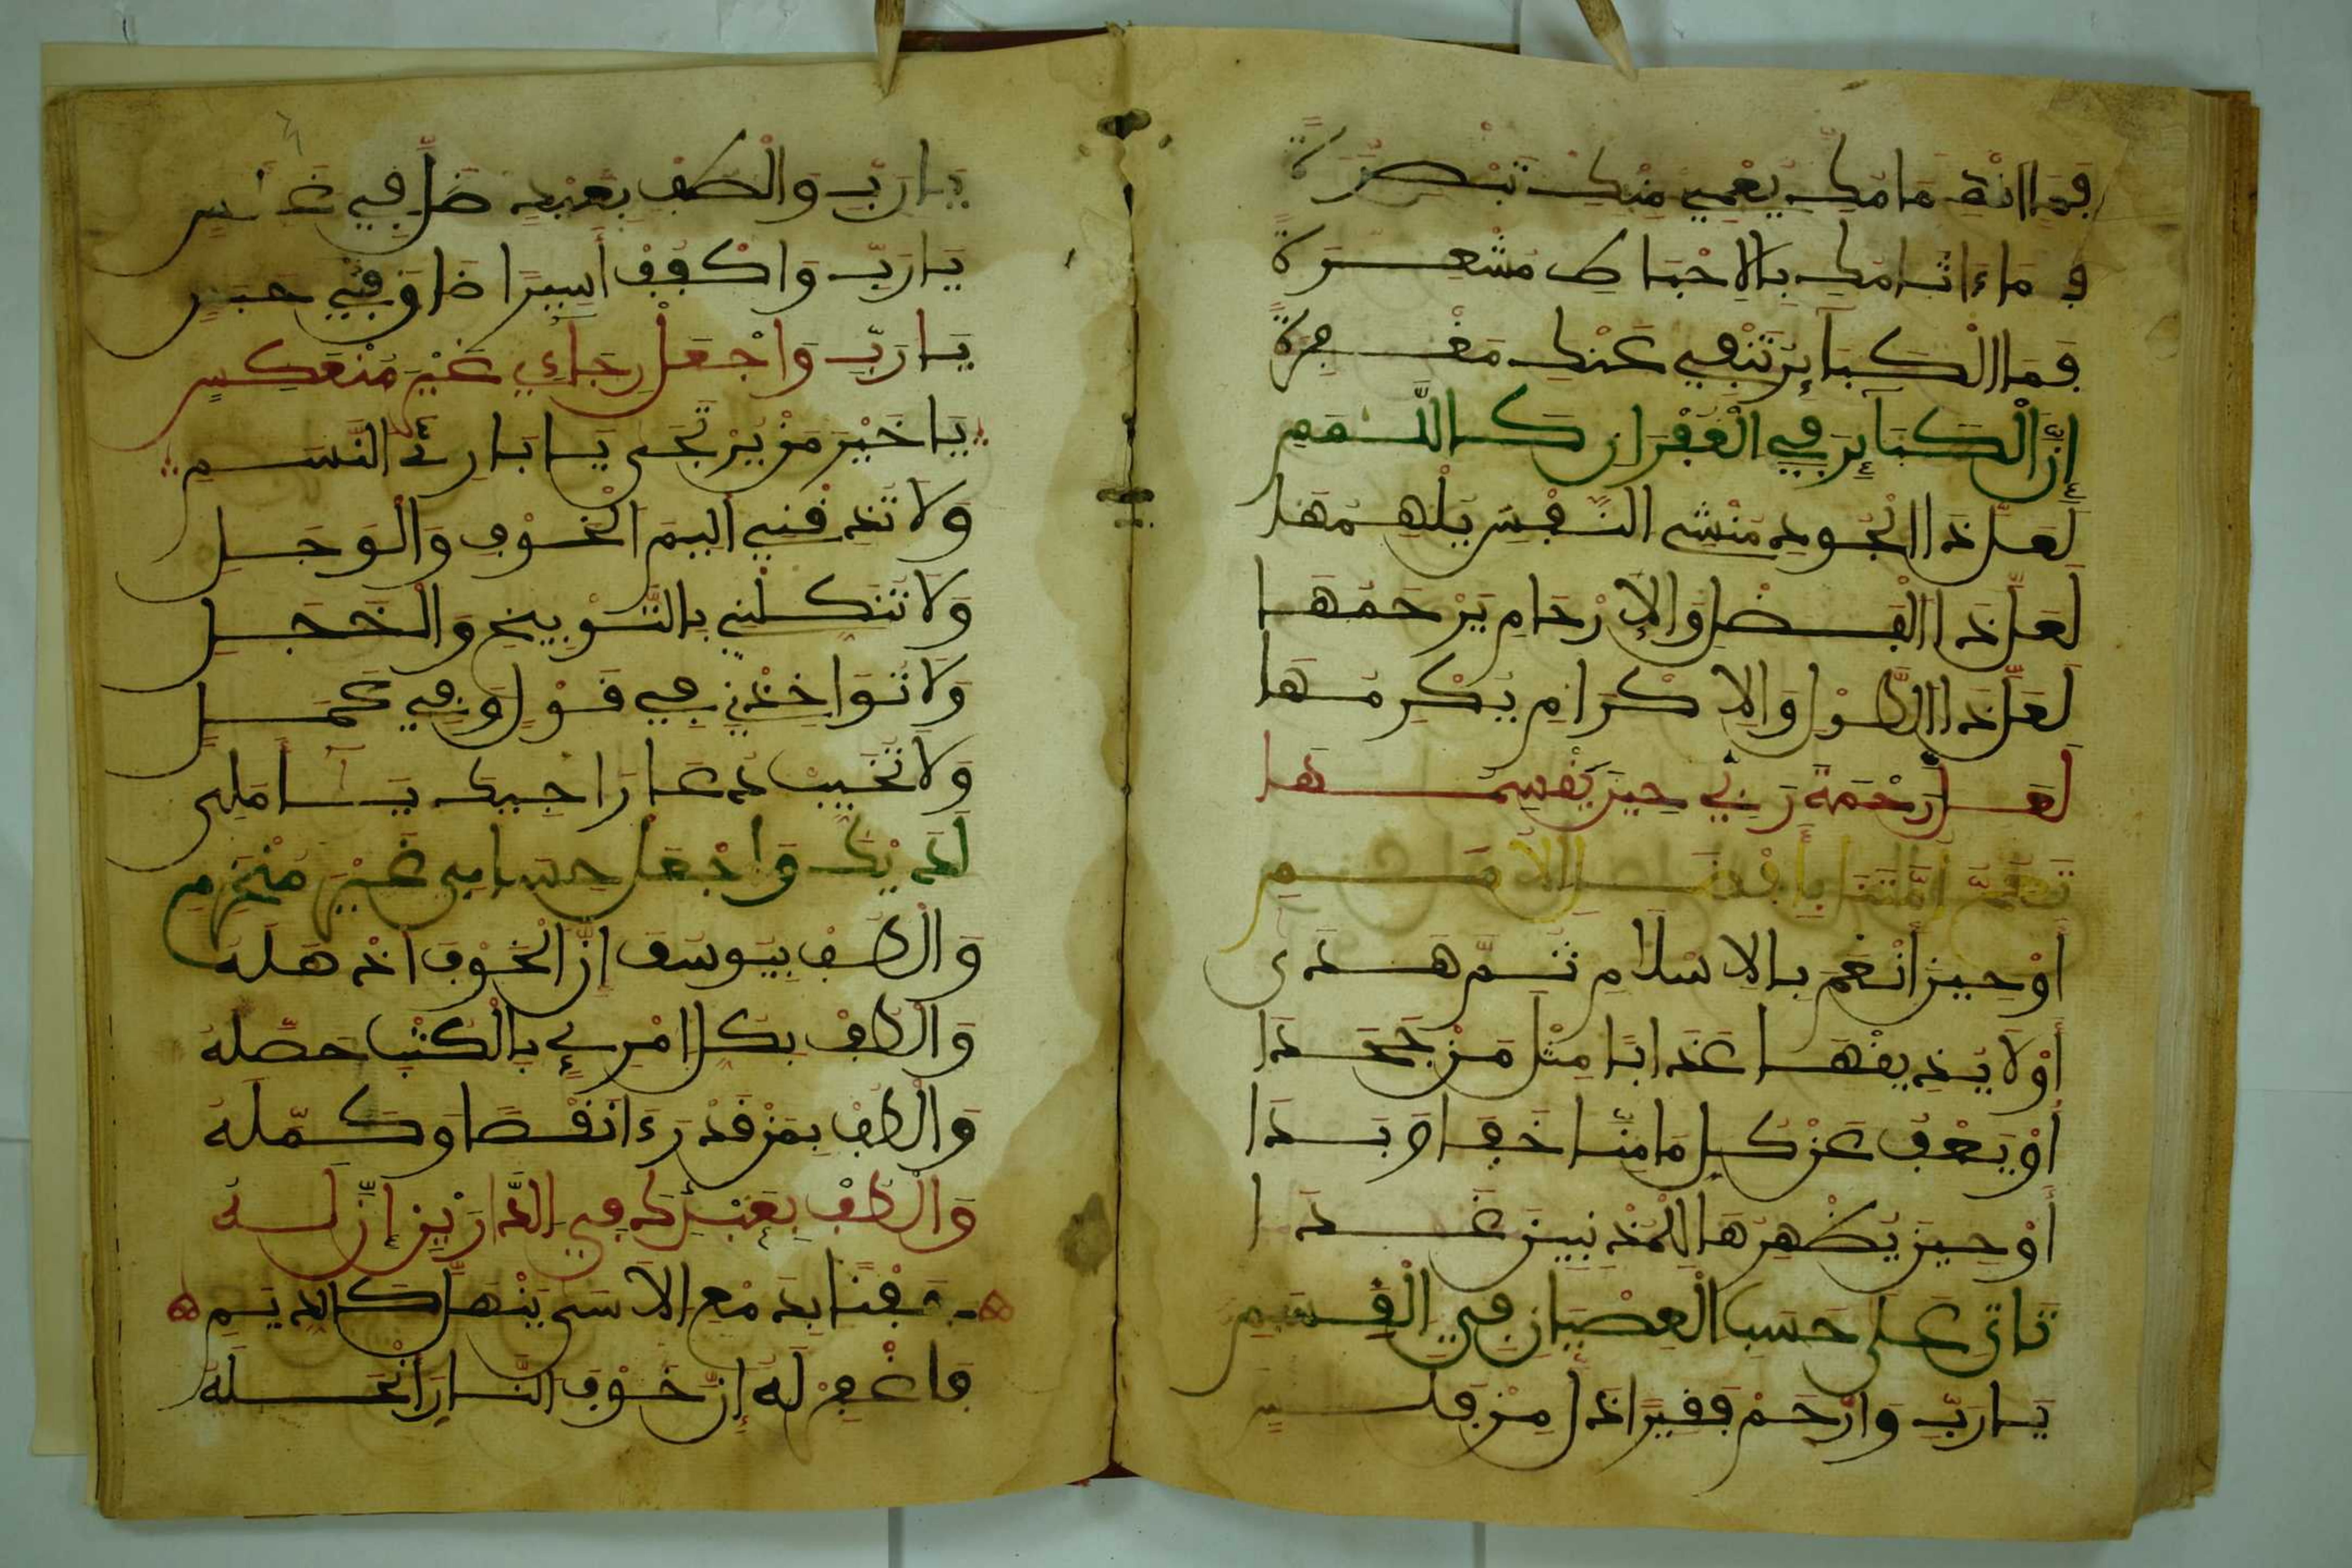 فما انتقامك يعمي منك تبصرة
وما ءاثامك بالاحباط مشعرة
فما الكبائر تنفي عنك مغفرة
إن الكبائر في الغفران كاللمم
لعل ذا الجود منشي النفس يلهمها
لعل ذا الفضل والارحام يرحمها
لعل ذا الطول والاكرام يكرمها
لعل رحمة ربي حين يقسمها
أو حين أنعم بالاسلام ثم هدى
أو لا يذيقها عذابا مثل من جحدا
أو يعف عن كل ما منا خفا وبدا
أو حين يظهرها للمذنبين غدا
تاتي على حسب العصيان في القسم
يا رب وارحم فقيرا ذل من فلس
يا رب والطف بعبد ضل في
يا رب واكفف أسيرا ضاق في حبس
يا رب واجعل رجاءي غير منعكس
يا خير من يرتجى يا بارئ النسم
ولا تذقني اليم الخوف والوجل
ولا تنكلني بالتوبيخ والخجل
ولا تواخذني في قول وفي عمل
ولا تخيب دعا راجيك يا أملي
لديك واجعل حسابي غير منخرم
والطف بيوسف إن الخوف اذهله
والطف بكل امرئ بالكتب حصله
والطف بمن قد رءا نقصا وكمله
والطف بعبدك في الدارين إن له
مع الاسى ينهل كالديم
فاغفر له إن خوف النار أنحله